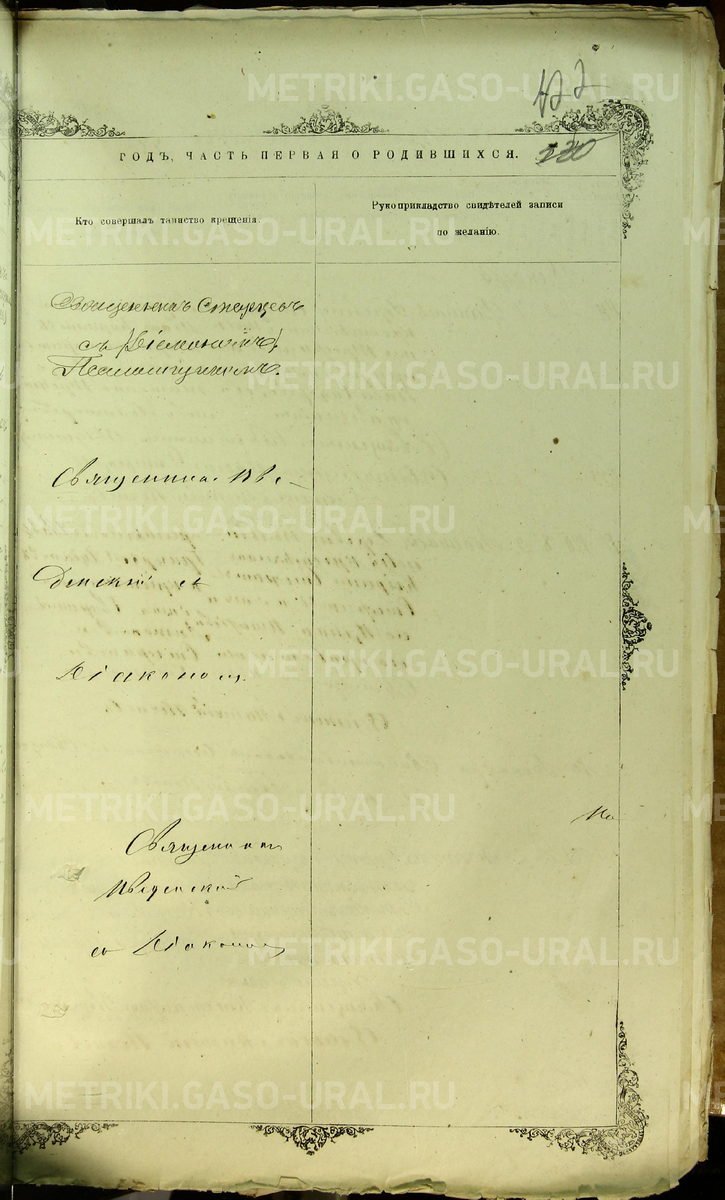 METRIKI.GASO-URAL.RU
122
ГОДЪ, ЧАСТЬ ПЕРВАЯ О РОДИВШИХСЯ.
330
Кто совершалъ таинство крещенія.
Рукоприкладство свидѣтелей записи
по желанію.
Священникъ Старцевъ
съ Діакономъ
Псаломщикомъ.
METRIKI.GASO-URAL.RU
Священникъ Вве-
METRIKI.GASO-URAL.RU
денскій съ
METRIKI.GASO-URAL.RU
Діакономъ
METRIKI.GASO-URAL.RU
METRIKI.GASO-URAL.RU
Священникъ
Введенскій
METRIKI.GASO-URAL.RU
съ Діакономъ
METRIKI.GASO-URAL.RU